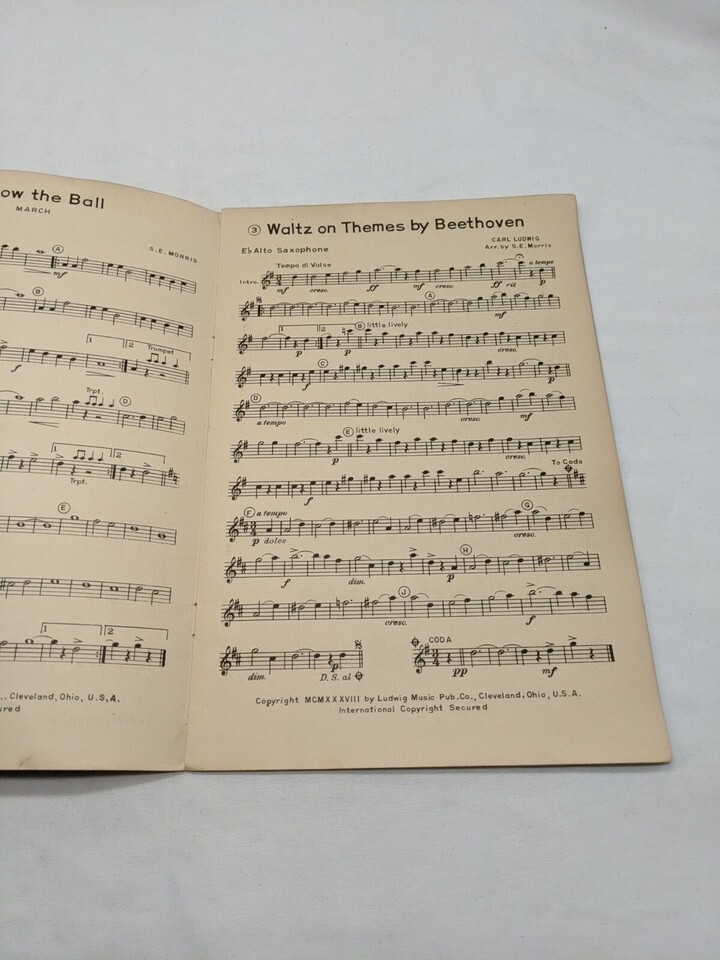 ow the Ball
MARCH
S.E. MORRIS
A
mf
B
1 2 Trumpet
f
Trpt.
D
1 2
Trpt.
E
1 2
., Cleveland, Ohio, U.S.A.
ured
3 Waltz on Themes by Beethoven
E♭ Alto Saxophone
CARL LUDWIG
Arr. by S.E. Morris
Tempo di Valse
a tempo
Intro.
mf cresc. ff mf cresc. ff rit p
A
mf
1 2 B little lively
p p cresc.
C
f p
D
a tempo cresc. mf
E little lively
p cresc.
To Coda
f
F a tempo G
p dolce cresc.
H
f dim. p
J
cresc. f
CODA
dim. D.S. al p
pp mf
Copyright MCMXXXVIII by Ludwig Music Pub. Co., Cleveland, Ohio, U.S.A.
International Copyright Secured